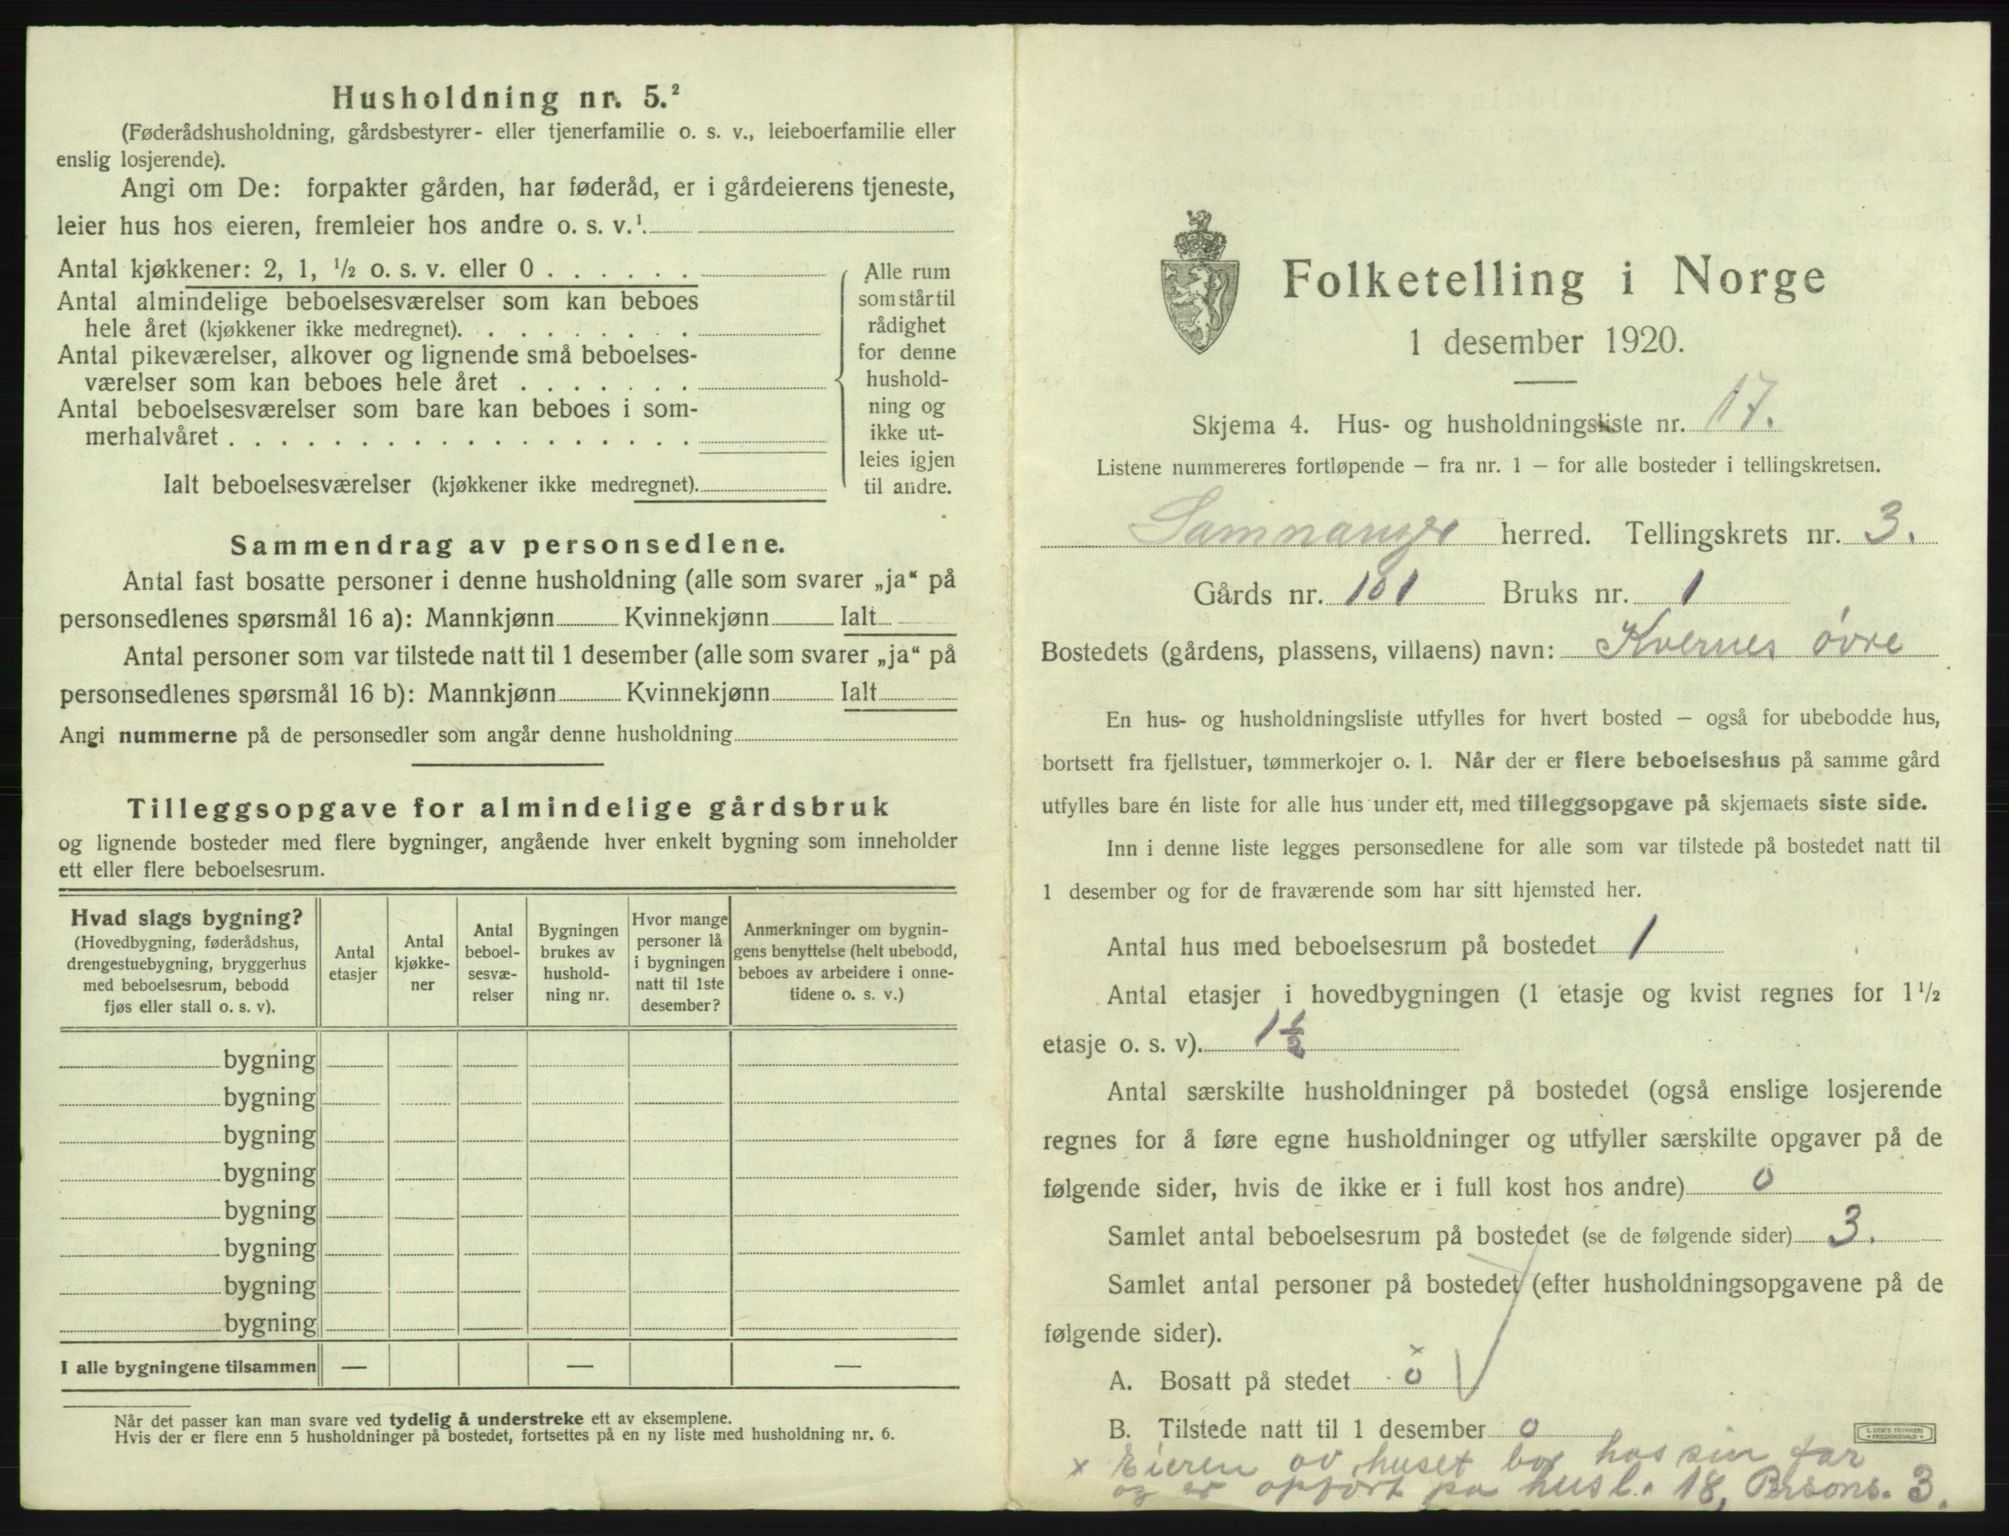 Husholdning nr. 5.²
(Føderådshusholdning, gårdsbestyrer- eller tjenerfamilie o. s. v., leieboerfamilie eller
enslig losjerende).
Angi om De: forpakter gården, har føderåd, er i gårdeierens tjeneste,
leier hus hos eieren, fremleier hos andre o. s. v.¹
Antal kjøkkener: 2, 1, ½ o. s. v. eller 0 . . . . . .
Antal almindelige beboelsesværelser som kan beboes
hele året (kjøkkener ikke medregnet). . . . . . . . .
Antal pikeværelser, alkover og lignende små beboelses-
værelser som kan beboes hele året . . . . . . .
Antal beboelsesværelser som bare kan beboes i som-
merhalvåret . . . . . . . . . . . . . . . . . .
Ialt beboelsesværelser (kjøkkener ikke medregnet).
Alle rum
som står til
rådighet
for denne
hushold-
ning og
ikke ut-
leies igjen
til andre.
Sammendrag av personsedlene.
Antal fast bosatte personer i denne husholdning (alle som svarer „ja“ på
personsedlenes spørsmål 16 a): Mannkjønn Kvinnekjønn Ialt
Antal personer som var tilstede natt til 1 desember (alle som svarer „ja“ på
personsedlenes spørsmål 16 b): Mannkjønn Kvinnekjønn Ialt
Angi nummerne på de personsedler som angår denne husholdning
Tilleggsopgave for almindelige gårdsbruk
og lignende bosteder med flere bygninger, angående hver enkelt bygning som inneholder
ett eller flere beboelsesrum.
Hvad slags bygning?
(Hovedbygning, føderådshus,
drengestuebygning, bryggerhus
med beboelsesrum, bebodd
fjøs eller stall o. s. v).
Antal
etasjer
Antal
kjøkke-
ner
Antal
beboel-
sesvæ-
relser
Bygningen
brukes av
hushold-
ning nr.
Hvor mange
personer lå
i bygningen
natt til 1ste
desember?
Anmerkninger om bygnin-
gens benyttelse (helt ubebodd,
beboes av arbeidere i onne-
tidene o. s. v.)
bygning
bygning
bygning
bygning
bygning
bygning
bygning
bygning
I alle bygningene tilsammen — — —
Når det passer kan man svare ved tydelig å understreke ett av eksemplene.
Hvis der er flere enn 5 husholdninger på bostedet, fortsettes på en ny liste med husholdning nr. 6.
Folketelling i Norge
1 desember 1920.
Skjema 4. Hus- og husholdningsliste nr. 17.
Listene nummereres fortløpende – fra nr. 1 – for alle bosteder i tellingskretsen.
Samnanger herred. Tellingskrets nr. 3.
Gårds nr. 101 Bruks nr. 1
Bostedets (gårdens, plassens, villaens) navn: Kvernes øvre
En hus- og husholdningsliste utfylles for hvert bosted – også for ubebodde hus,
bortsett fra fjellstuer, tømmerkojer o. l. Når der er flere beboelseshus på samme gård
utfylles bare én liste for alle hus under ett, med tilleggsopgave på skjemaets siste side.
Inn i denne liste legges personsedlene for alle som var tilstede på bostedet natt til
1 desember og for de fraværende som har sitt hjemsted her.
Antal hus med beboelsesrum på bostedet 1
Antal etasjer i hovedbygningen (1 etasje og kvist regnes for 1½
etasje o. s. v). 1½
Antal særskilte husholdninger på bostedet (også enslige losjerende
regnes for å føre egne husholdninger og utfyller særskilte opgaver på de
følgende sider, hvis de ikke er i full kost hos andre) 0
Samlet antal beboelsesrum på bostedet (se de følgende sider) 3.
Samlet antal personer på bostedet (efter husholdningsopgavene på de
følgende sider).
x
A. Bosatt på stedet 0
B. Tilstede natt til 1 desember 0
x Eieren av huset bor hos sin far
og er opført på husl. 18, Persons. 3.